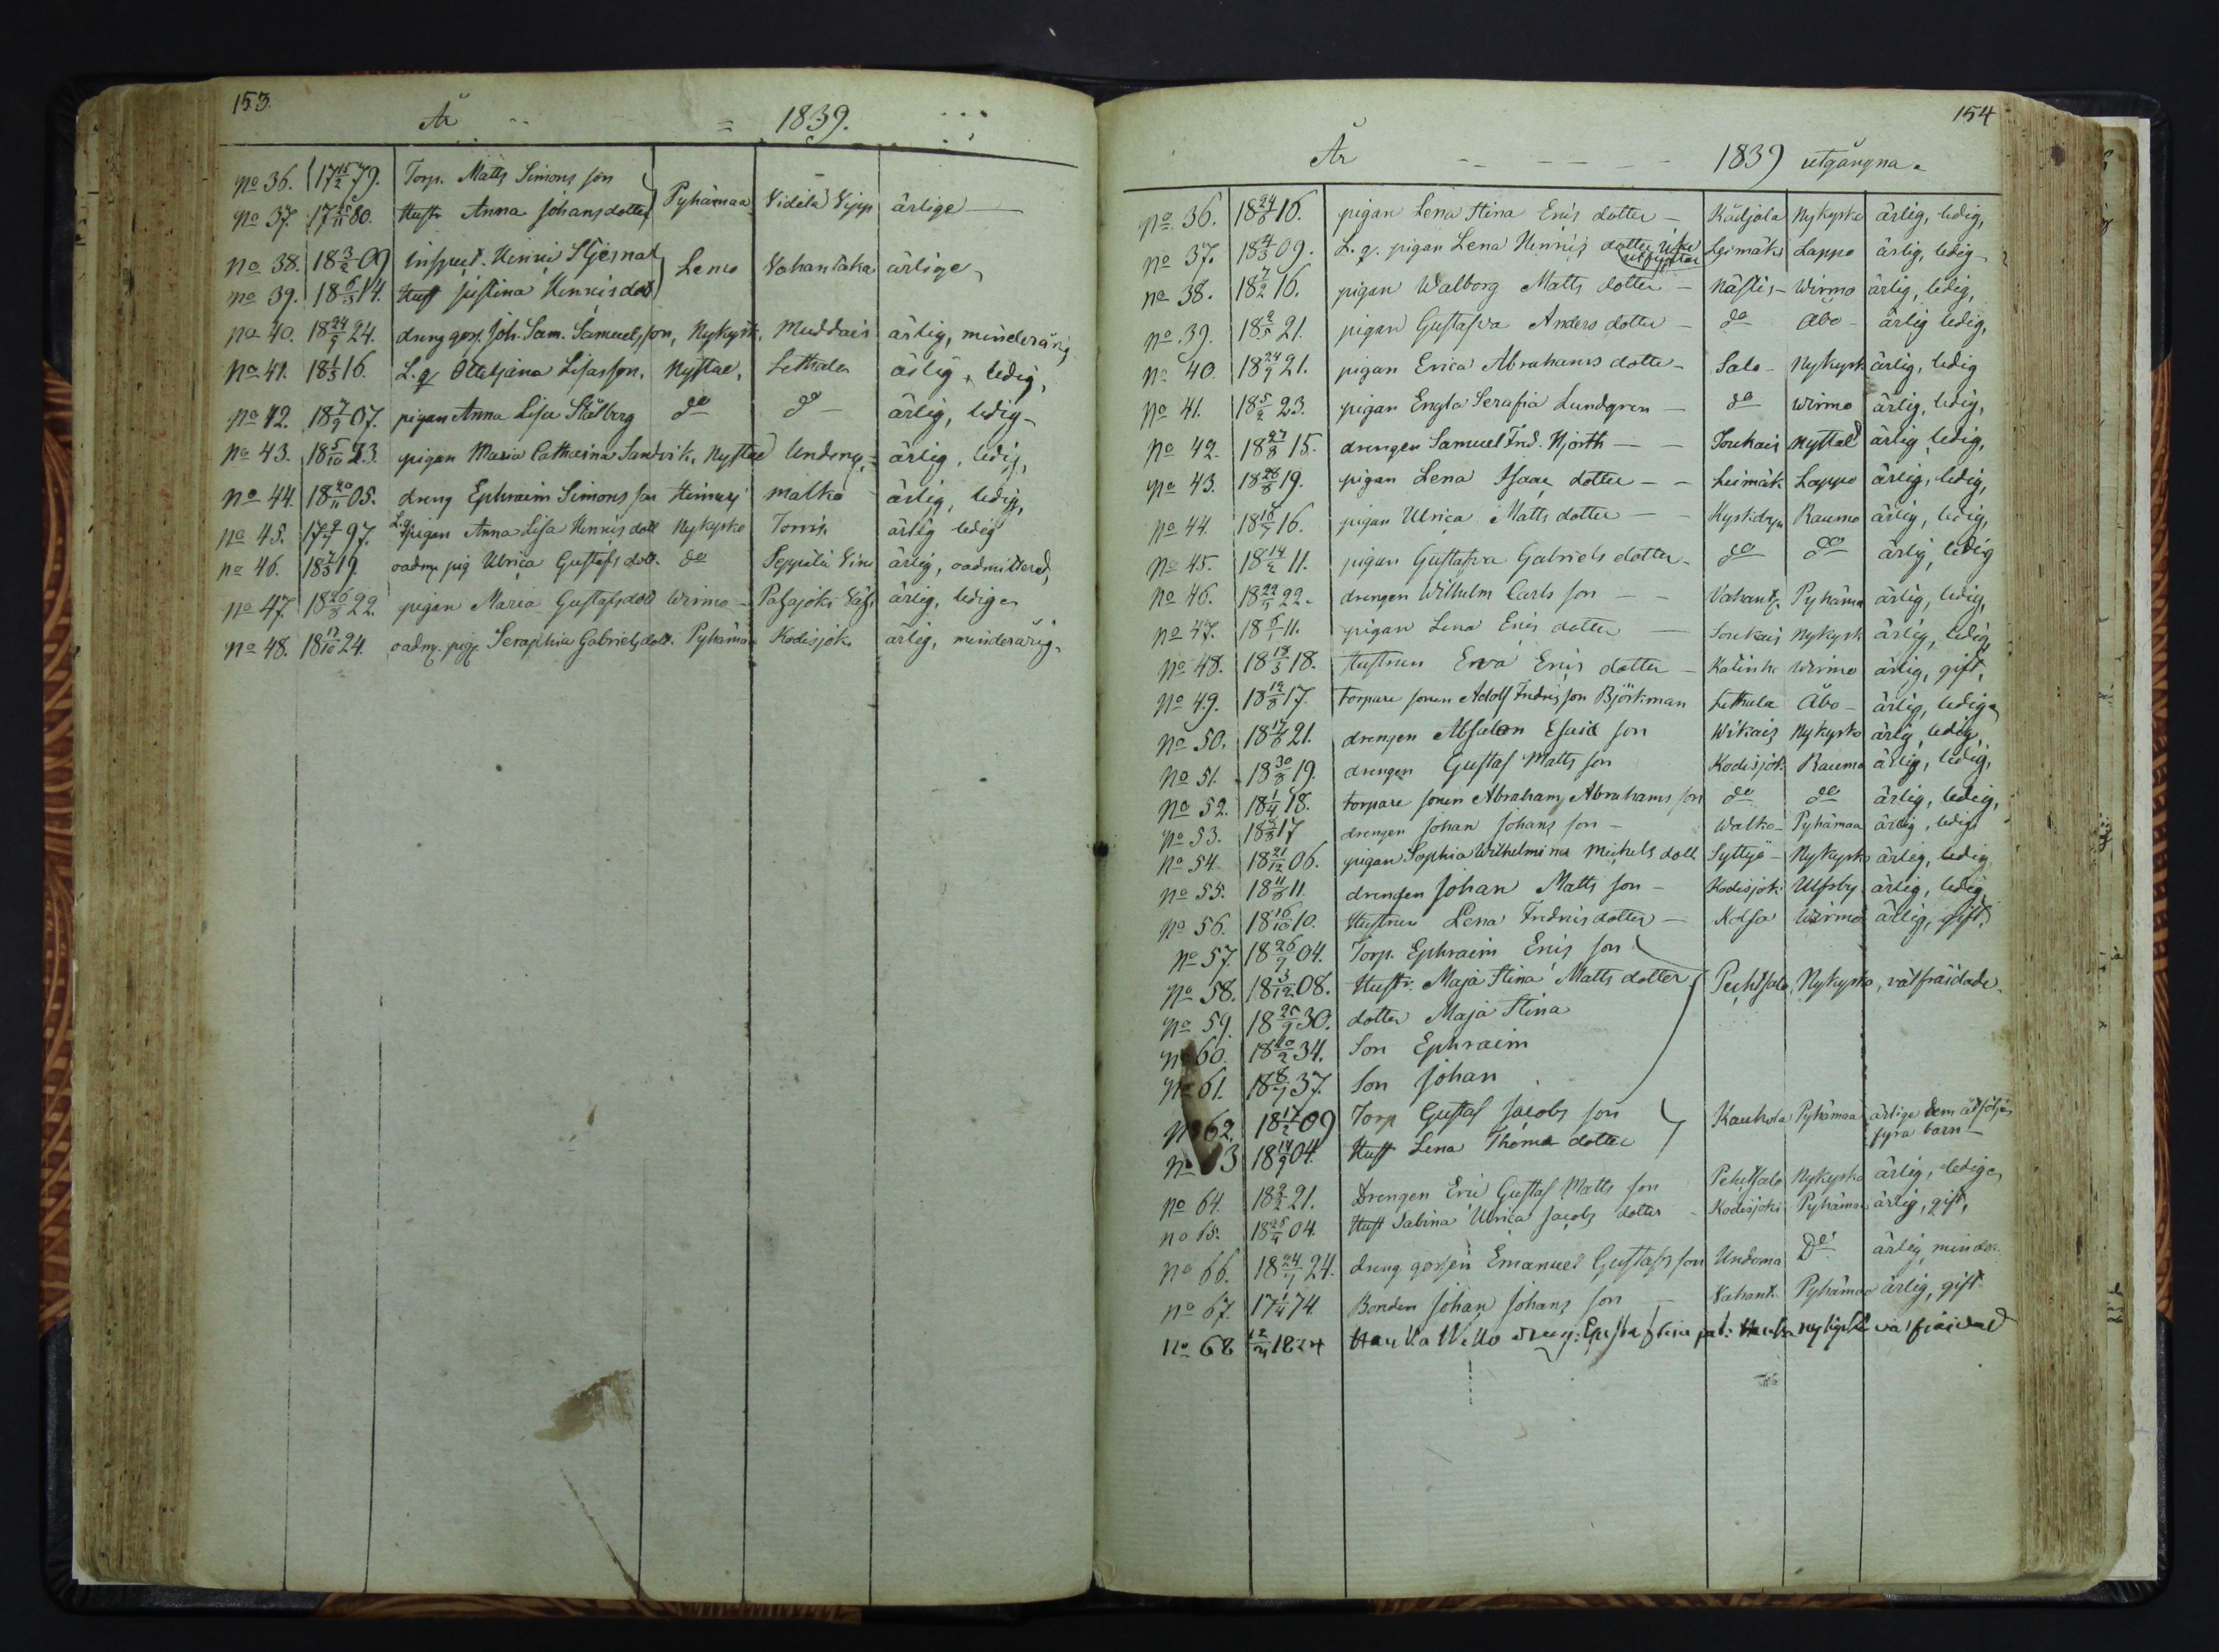 153.
År = 1839.
No 36. 17 15/2 79. Torp. Matts Simons son
No 37. 17 /11 80. Hustr Anna Johansdotter Pyhämaa Videla Vijip ärlige
No 38. 18 3/2 09 Inspect. Henric Stjernat
No 39. 18 6/3 14. Hust Justina Henricsdot Lemo Vahantaka ärlige,
No 40. 18 24/5 24. drenggoss. Joh. Sam. Samuelsson, Nykyrk. Muddais ärlig, minderårig
No 41. 18 1/5 16. L.q. Ottiljana Lisasson, Nystad, Lethala ärlig, ledig,
No 42. 18 7/9 07. pigan Anna Lisa Stålberg do do ärlig, ledig
No 43. 18 5/10 23. pigan Maria Catharina Sandvik, Nystad ärlig, ledig,
No 44. 18 20/11 05. dreng Ephraim Simons son Hinnerj malko ärlig, ledig,
No 45. 17 97. L.q. pigan Anna Lisa Henrics dott Nykyrko ärlig ledig
No 46. 18 19. oadm. pig Ulrica Gustafs dott. do Seppälä Vini ärlig, oadmitterad,
No 47. 18 26/8 22. pigan Maria Gustafsdott Wirmo ärlig, ledig
No 48. 18 12/10 24. oadm. pig. Seraphia Gabrielsdott. Pyhämaa Kodisjok. ärlig, minderårig.
154
År 1839 utgångna.
No 36. 18 24/5 16. pigan Lena Stina Erics dotter Kädjola Nykyrko ärlig, ledig,
No 37. 18 09. L.q. pigan Lena Henrics dotter icke utflyttat Leimäki Lappo ärlig, ledig
No 38. 18 7/2 16. pigan Walborg Matts dotter Nästis Wirmo ärlig, ledig,
No 39. 18 2/5 21. pigan Gustafva Anders dotter do Åbo ärlig ledig,
No 40. 18 24/9 21. pigan Erica Abrahams dotter Salo Nykyrk ärlig, ledig
No 41. 18 5/2 23. pigan Engla Serafia Lundgren do Wirmo ärlig, ledig,
No 42. 18 27/8 15. drengen Samuel Fred. Hjorth Soukais Nystad ärlig, ledig,
No 43. 18 28/8 19. pigan Lena Isaac dotter Leimäk Lappo ärlig, ledig,
No 44. 18 16. pigan Ulrica Matts dotter Raumo ärlig, ledig,
No 45. 18 14/2 11. pigan Gustafva Gabriels dotter do do ärlig, ledig
No 46. 18 22/5 22. drengen Wilhelm Carls son Vahant. Pyhäma ärlig, ledig,
No 47. 18 6/1 11. pigan Lena Erics dotter Soukais Nykyrk ärlig, ledig
No 48. 18 18/5 18. Hustrun Erva Erics dotter Katinh. Wirmo ärlig, gift,
No 49. 18 12/8 17. torpare sonen Adolf Fredricsson Björkman Lethala Åbo ärlig, ledig
No 50. 18 21. drengen Absalon Esaia son Wikais Nykyrko ärlig, ledig,
No 51. 18 30/8 19. drengen Gustaf Matts son Kodisjok. Raumo ärlig, ledig,
No 52. 18 1/4 18. torpare sonen Abraham Abrahams son do do ärlig, ledig,
No 53. 18 17 drengen Johan Johans son Walko Pyhämaa ärlig, ledig
No 54. 18 21/12 06. pigan Sophia Wilhelmina Michels dott Syttjä Nykyrko ärlig, ledig
No 55. 18 11/8 11. drengen Johan Matts son Kodisjoki Ulfsby ärlig, ledig
No 56. 18 16/10 10. Hustrun Lena Fredricsdotter Kolsa Wirmo ärlig, gift,
No 57. 18 26/7 04. Torp. Ephraim Erics son
No 58. 18 3/12 08. Hustr. Maja Stina Matts dotter Pechtsalo, Nykyrko, välfräjdade.
No 59. 18 25/9 30. dotter Maja Stina
No 60. 18 20/2 34. Son Ephraim
No 61. 18 8/7 37. Son Johan
No 62. 18 17/2 09 Torp Gustaf Jacobs son Kauhola Pyhämaa ärlige dem åtfölja
No 63 18 14/9 04. Hust Lena Thoma dotter fyra barn
No 64. 18 2/2 21. Drengen Eric Gustaf Matts son Pehtsalo Nykyrko ärlig, ledig
No 65. 18 25/4 04. Hust Sabina Ulrica Jacobs dotter Kodisjoki Pyhämaa ärlig, gift,
No 66. 18 24/7 24. dreng gossen Emanuel Gustafs son Undoma Do ärlig, minder.
No 67. 17 1/4 74. Bonden Johan Johans son Vahant. Pyhämaa ärlig, gift.
No 68 12/4 1824 Nykyrko välfräidad